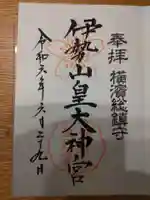 奉拝 横濱総鎮守
伊勢山皇大神宮
令和六年六月二十九日